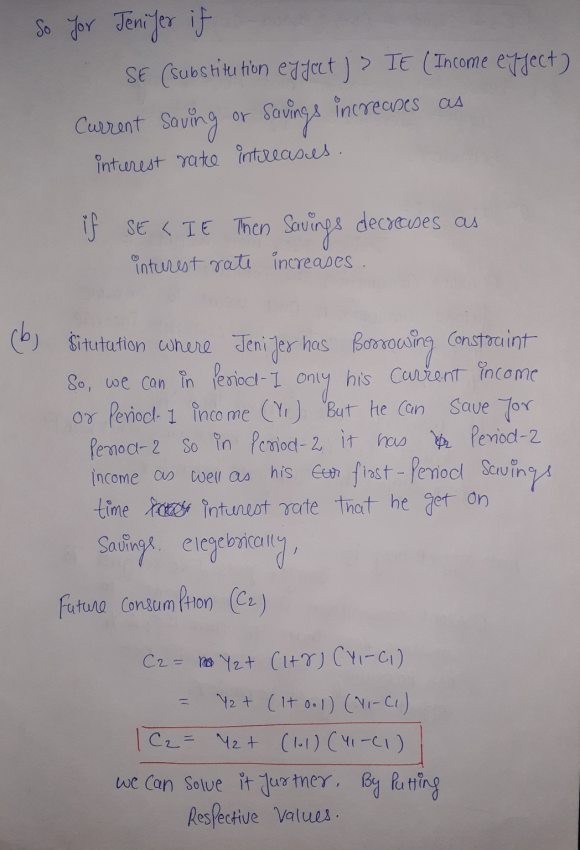 So for Jenifer if
SE (substitution effect) > IE (Income effect)
Current Saving or Savings increases as
interest rate intreases.
if SE < IE Then Savings decreases as
interest rate increases.
(b) Situtation where Jenifer has Borrowing Constraint
So, we can in Period-I only his Current income
or Period-1 income (Y1). But He Can Save for
Period-2 So in Period-2 it has Period-2
income as well as his first-Period Savings
time interest rate that he get on
Savings. elegebrically,
Future Consumption (C2)
C2 = Y2 + (1+r) (Y1-C1)
= Y2 + (1+0.1) (Y1-C1)
C2 = Y2 + (1.1) (Y1-C1)
we Can Solve it further. By Putting
Respective Values.